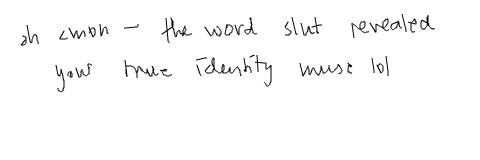 oh cmon - the word slut revealed
your true identity muse lol